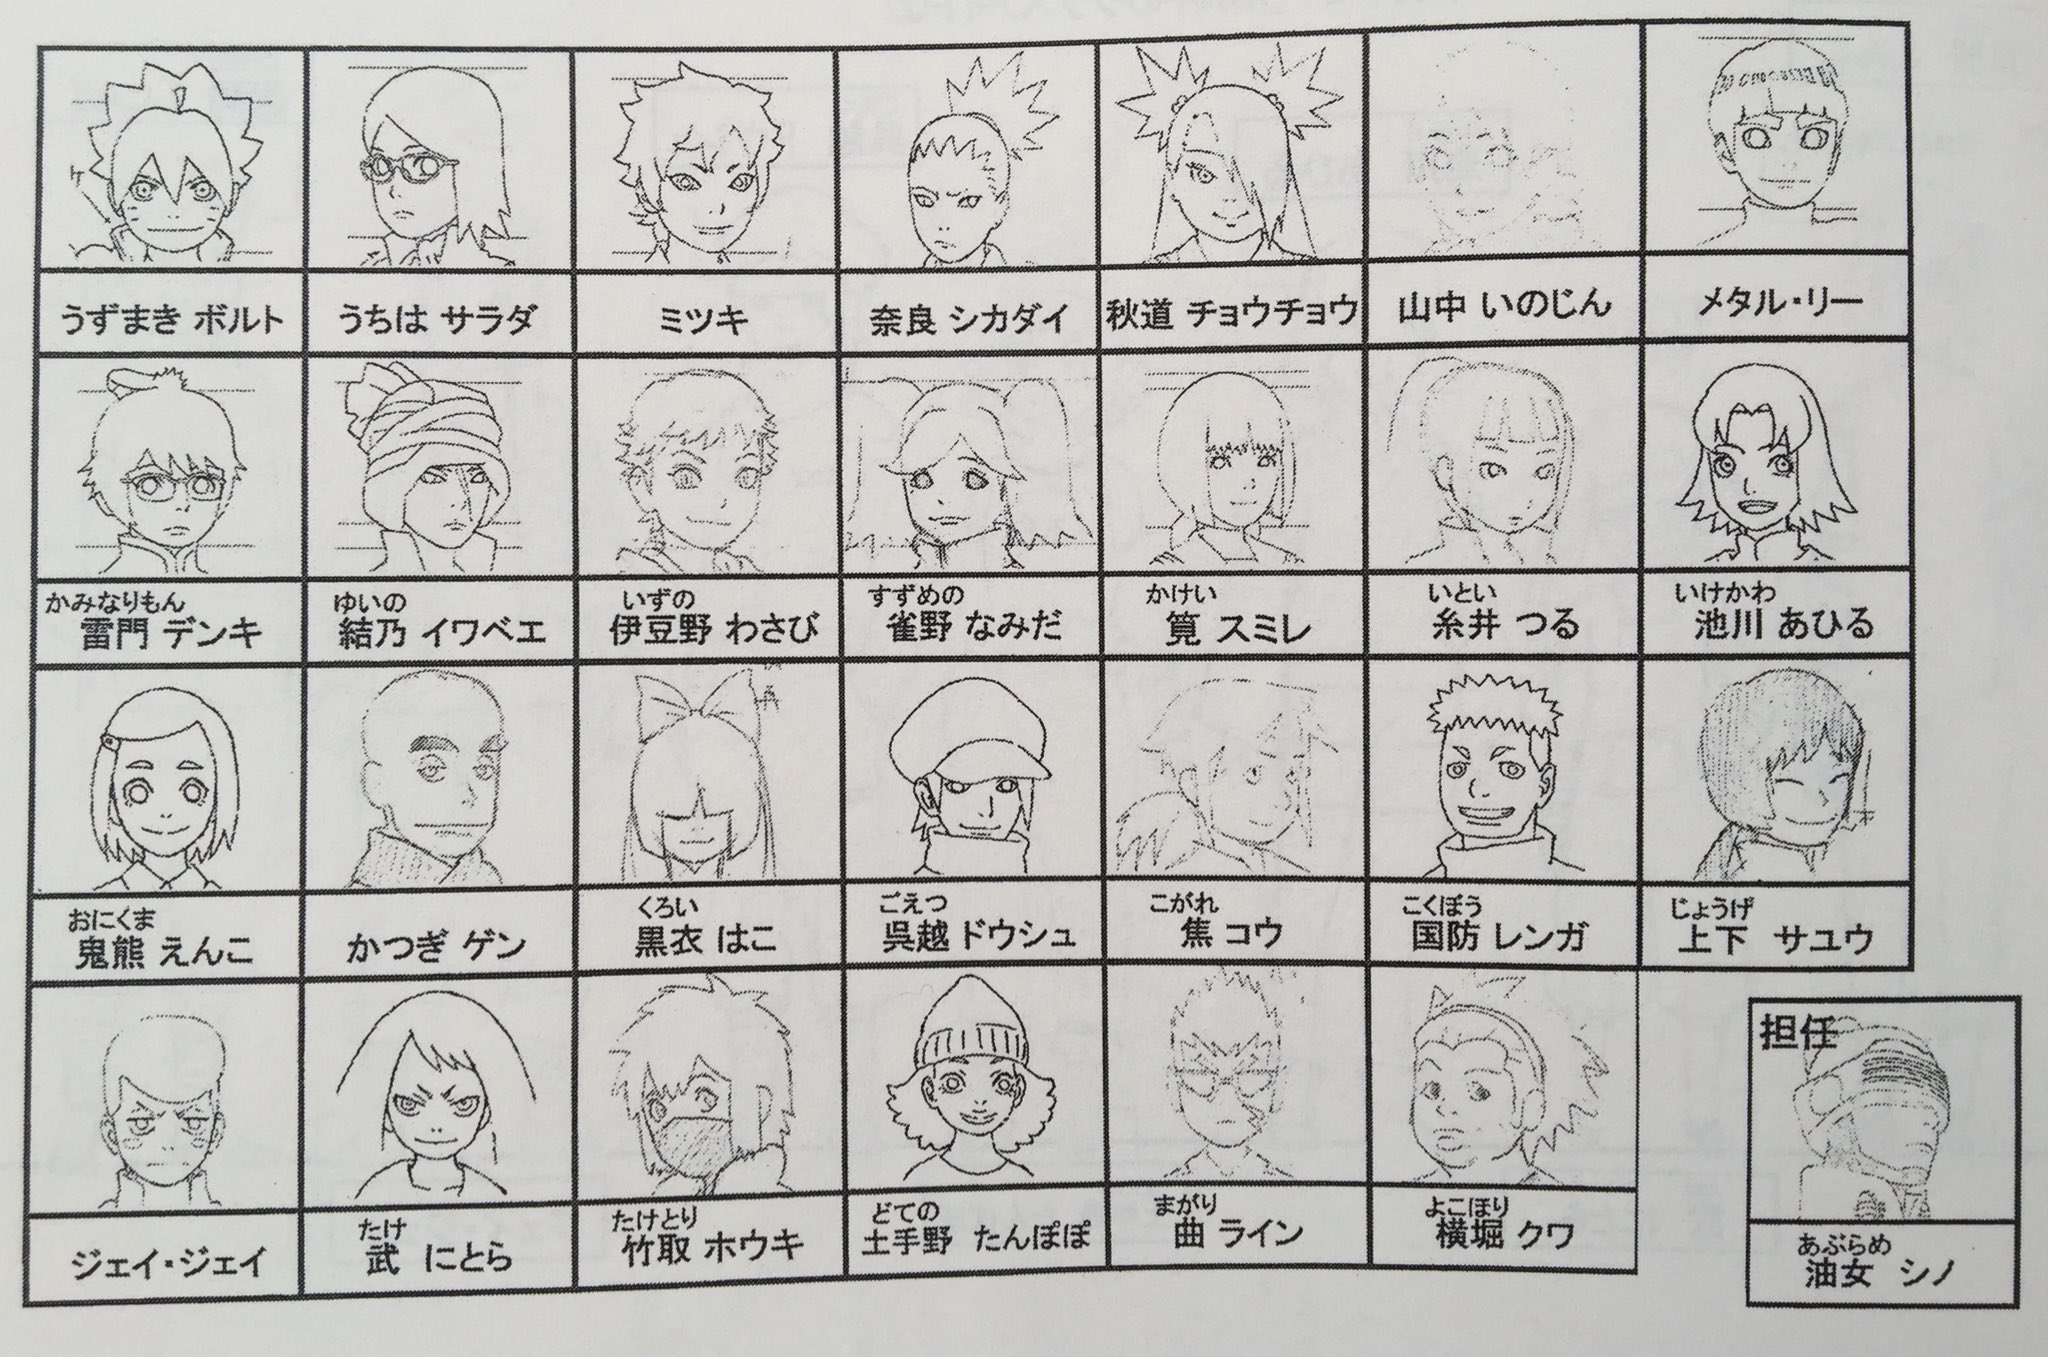 うずまき ボルト
うちは サラダ
ミツキ
奈良 シカダイ
秋道 チョウチョウ
山中 いのじん
メタル・リー
かみなりもん
雷門 デンキ
ゆいの
結乃 イワベエ
いずの
伊豆野 わさび
すずめの
雀野 なみだ
かけい
筧 スミレ
いとい
糸井 つる
いけかわ
池川 あひる
おにくま
鬼熊 えんこ
かつぎ ゲン
くろい
黒衣 はこ
ごえつ
呉越 ドウシュ
こがれ
焦 コウ
こくぼう
国防 レンガ
じょうげ
上下 サユウ
ジェイ・ジェイ
たけ
武 にとら
たけとり
竹取 ホウキ
どての
土手野 たんぽぽ
まがり
曲 ライン
よこほり
横堀 クワ
担任
あぶらめ
油女 シノ